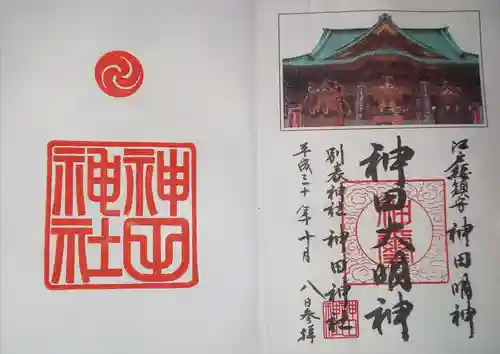 江戸総鎮守 神田明神
神田大明神
別表神社 神田神社
平成三十年十月 八日参拝
神田
神社